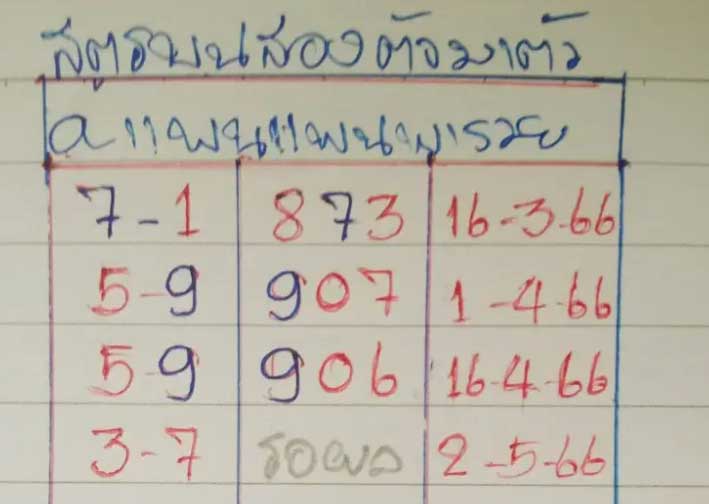 สูตรบนสองตัวมาตัว
แพนแพนพารวย
7-1 873 16-3-66
5-9 907 1-4-66
5-9 906 16-4-66
3-7 รอผล 2-5-66